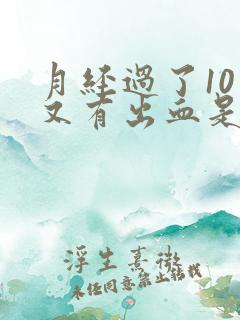 月经過了10
又有出血是
浮生熹微
未经同意禁止转载